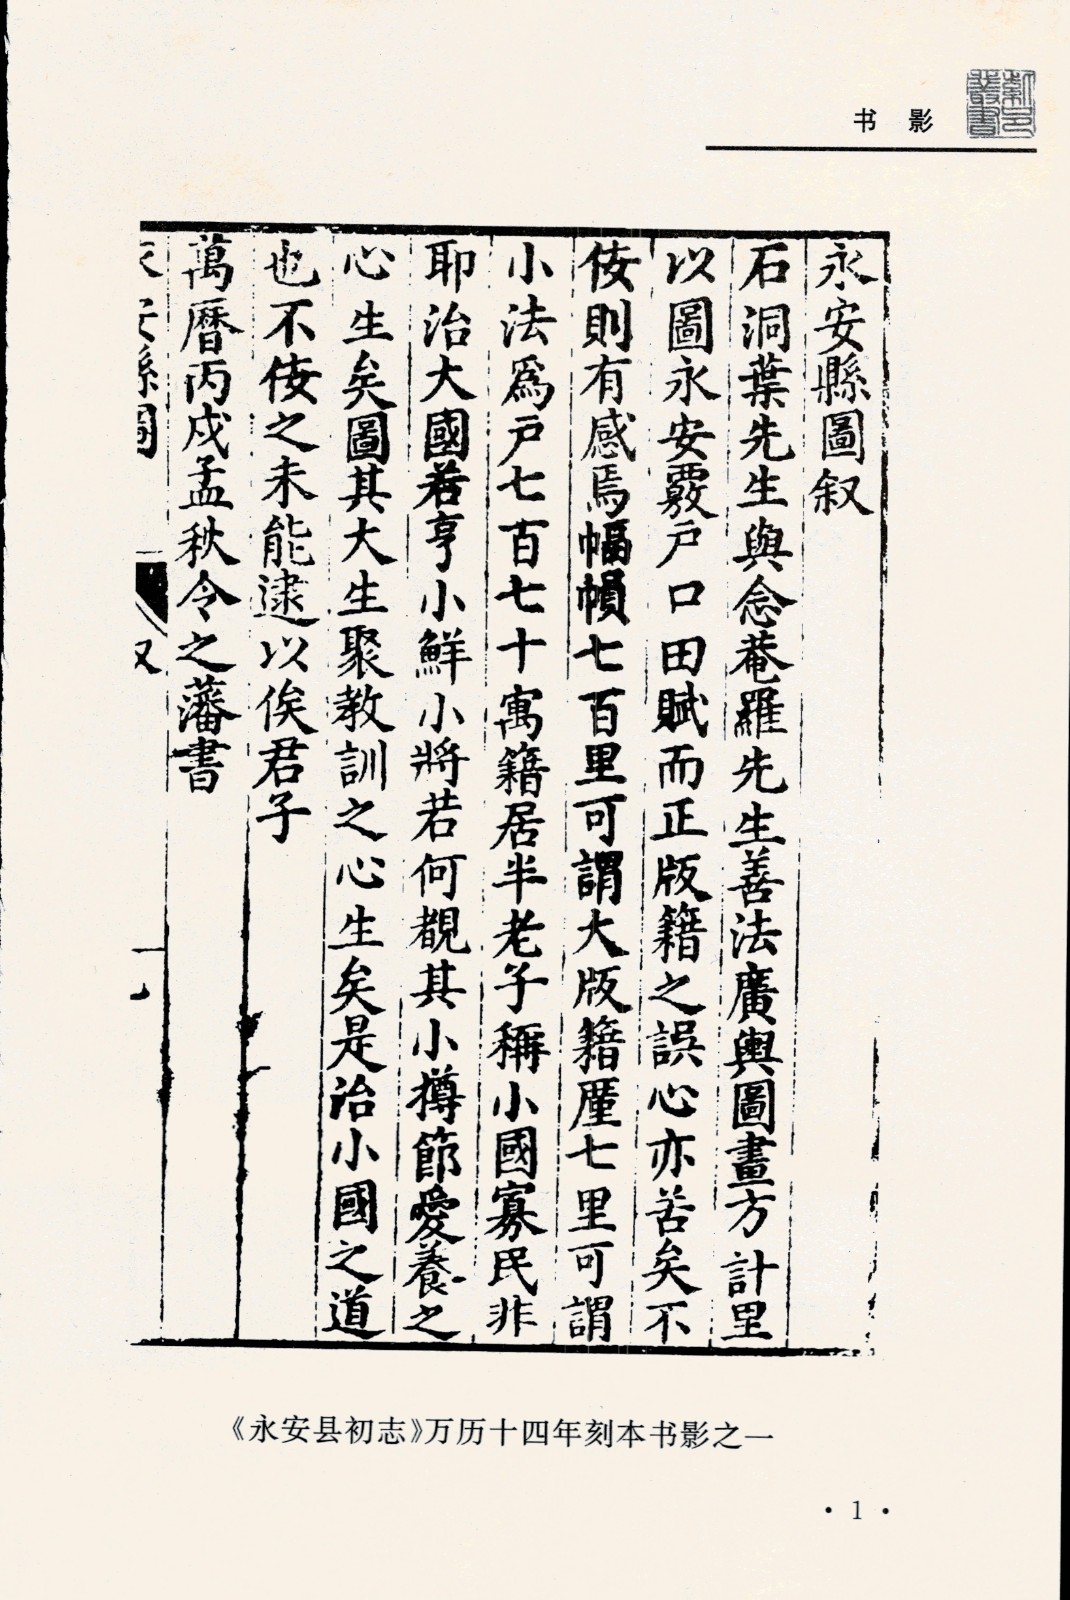 书 影
紫邑叢書
永安縣圖叙
石洞葉先生與念菴羅先生善法廣輿圖畫方計里
以圖永安覈戸口田賦而正版籍之誤心亦苦矣不
佞則有感焉幅幀七百里可謂大版籍厪七里可謂
小法爲戸七百七十寓籍居半老子稱小國寡民非
耶治大國若亨小鮮小將若何覩其小撙節愛養之
心生矣圖其大生聚教訓之心生矣是治小國之道
也不佞之未能逮以俟君子
萬曆丙戍孟秋令之藩書
永安縣圖 叙
《永安县初志》万历十四年刻本书影之一
· 1 ·